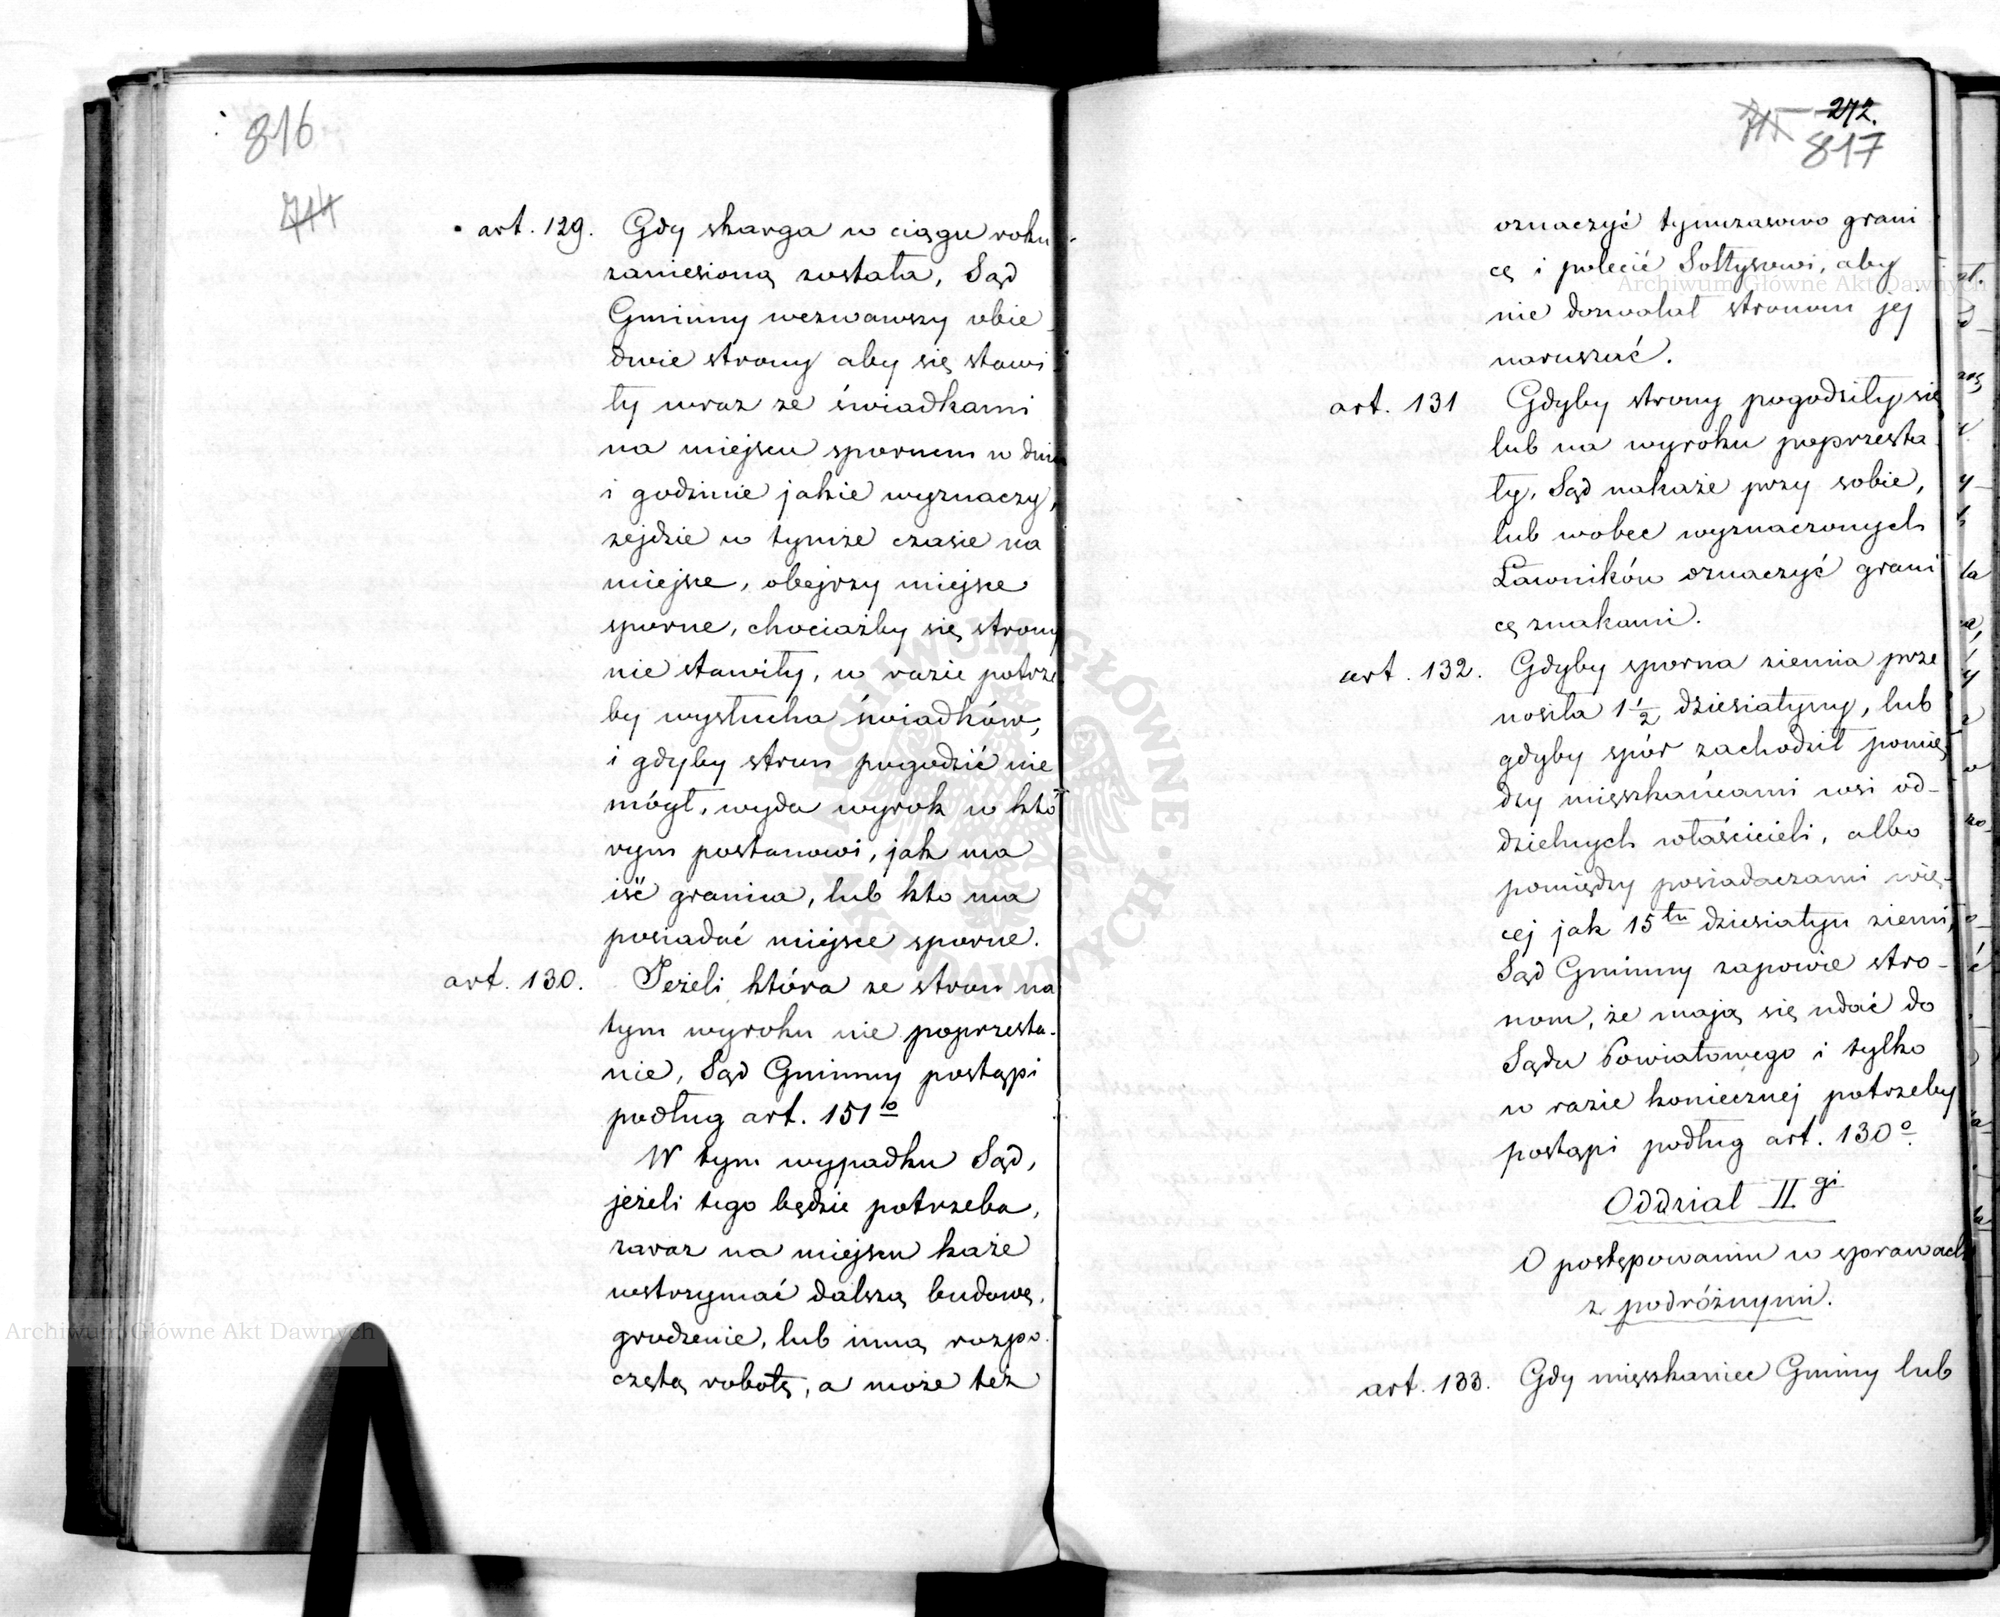 816
714
art. 129. Gdy skarga w ciągu roku
zaniesioną została, Sąd
Gminny wezwawszy obie-
dwie strony aby się stawi-
ły wraz ze świadkami
na miejscu spornem w dniu
i godzinie jakie wyznaczy,
zejdzie w tymże czasie na
miejsce, obejrzy miejsce
sporne, chociażby się strony
nie stawiły, w razie potrze
by wysłucha świadków,
i gdyby stron pogodzić nie
mógł, wyda wyrok w któ
rym postanowi, jak ma
iść granica, lub kto ma
posiadać miejsce sporne.
art. 130. Jeżeli która ze stron na
tym wyroku nie poprzesta-
nie, Sąd Gminny postąpi
podług art. 151º
W tym wypadku Sąd,
jeżeli tego będzie potrzeba,
zaraz na miejscu każe
wstrzymać dalszą budowę,
grodzenie, lub inną rozpo-
czętą robotę, a może też
715 272.
817
oznaczyć tymczasowo grani
cę i polecić Sołtysowi, aby
nie dozwalał stronom jej
naruszać.
art. 131 Gdyby strony pogodziły się
lub na wyroku poprzesta
ły, Sąd nakaże przy sobie,
lub wobec wyznaczonych
Ławników oznaczyć grani
cę znakami.
art. 132. Gdyby sporna ziemia prze
nosiła 1 1/2 dziesiatyny, lub
gdyby spór zachodził pomię
dzy mieszkańcami wsi od-
dzielnych właścicieli, albo
pomiędzy posiadaczami wię-
cej jak 15tu dziesiatyn ziemi,
Sąd Gminny zapowie stro-
nom, że mają się udać do
Sądu Powiatowego i tylko
w razie koniecznej potrzeby
postąpi podług art. 130º.
Oddział IIgi
O postępowaniu w sprawach
z podróżnymi.
art. 133. Gdy mieszkaniec Gminy lub
Archiwum Główne Akt Dawnych
Archiwum Główne Akt Dawnych
ARCHIWUM GŁÓWNE AKT DAWNYCH